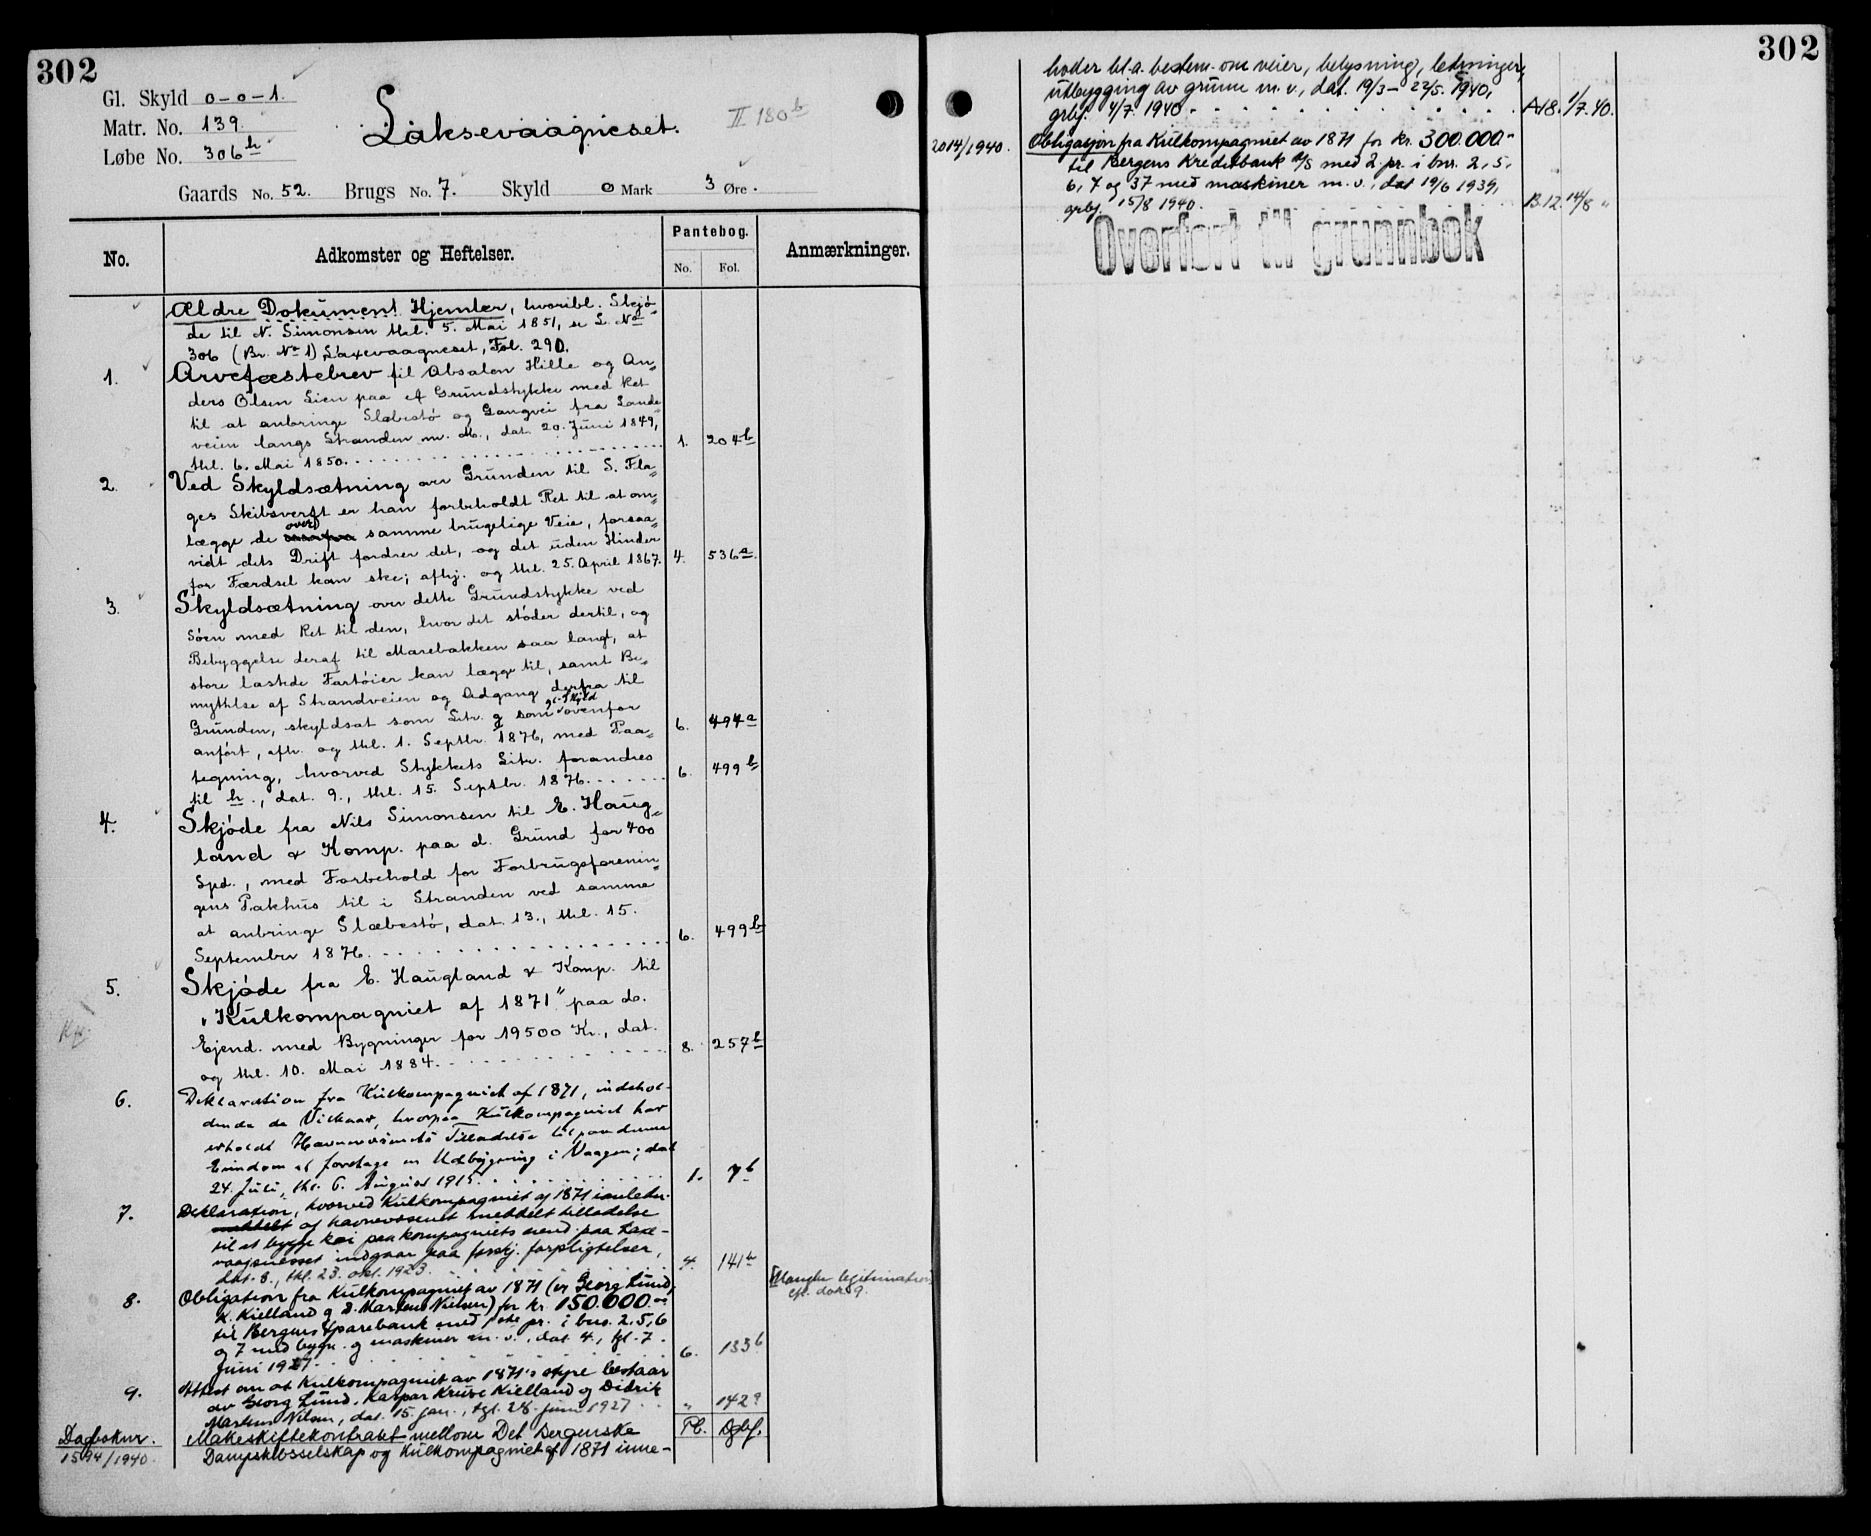 302
Gl. Skyld 0-0-1.
Matr. No. 139.
Løbe No. 306h
Laksevaagneset.
II 180b
Gaards No. 52. Brugs No. 7. Skyld 0 Mark 3 Øre.
No.
Adkomster og Heftelser.
Pantebog.
No. Fol.
Anmærkninger.
Ældre Dokument Hjemler, hvoribl. Skjø-
de til N. Simonsen thl. 5. Mai 1851, se L. No
306 (Br. No 1) Laxevaagneset, Fol. 290.
1. Arvefæstebrev til Absalon Hille og An-
ders Olsen Lien paa et Grundstykke med Ret
til at anbringe Slæbestø og Gangvei fra Lande-
veien langs Stranden m. M., dat. 20. Juni 1849,
thl. 6. Mai 1850. 1. 204b
2. Ved Skyldsætning over Grunden til S. Fla-
ges Skibsverft er han forbeholdt Ret til at om-
lægge de over samme brugelige Veie, forsaa-
vidt dets Drift fordrer det, og det uden Hinder
for Færdsel kan ske; afhj. og thl. 25. April 1867. 4. 536a.
3. Skyldsætning over dette Grundstykke ved
Søen med Ret til den, hvor det støder dertil, og
Bebyggelse deraf til Marebakken saa langt, at
store lastede Fartøier kan lægge til, samt Be-
nyttelse af Strandveien og Adgang derfra til
Grunden, skyldsat som Litr. g som gl. Skyld ovenfor
anført, afh. og thl. 1. Septbr. 1876, med Paa- 6. 494a
tegning, hvorved Stykkets Litr. forandres
til h., dat. 9., thl. 15. Septbr. 1876. 6. 499b
4. Skjøde fra Nils Simonsen til E. Haug-
land & Komp. paa d. Grund for 400
Spd., med Forbehold for Forbrugsforenin-
gens Pakhus til i Stranden ved samme
at anbringe Slæbestø, dat. 13., thl. 15.
September 1876. 6. 499b
5. Skjøde fra E. Haugland & Komp. til
"Kulkompagniet af 1871" paa do.
Ejend. med Bygninger for 19500 Kr., dat.
og thl. 10. Mai 1884. 8. 257b
6. Deklaration fra Kulkompagniet af 1871, indehol-
dende de Vilkaar, hvorpaa Kulkompagniet har
erholdt Havnevæsenets Tilladelse til paa denne
Eiendom at foretage en Udbygning i Vaagen; dat
24. Juli, thl. 6. August 1915. 1. 7b
7. Deklaration, hvorved Kulkompagniet af 1871
af havnevæsenet meddelt tilladelse
til at bygge kai paa kompagniets eiend. paa Laxe-
vaagnesset indgaar paa forskj. forpligtelser,
dat. 8., thl. 23. okt. 1923. 4. 141b
8. Obligation fra Kulkompagniet av 1871 (ved Georg Lund,
K. Kielland og D. Martens Nielsen) for kr. 150.000.00
til Bergens Sparebank med 1ste pr. i bno. 2, 5, 6
og 7 med bygn. og maskiner m. v., dat. 4., tgl. 7.
juni 1927. 6. 133b
Mangler legitimation,
cfr. dok 9.
9. Attest om at Kulkompagniet av 1871's styre bestaar
av Georg Lund, Kaspar Kruse Kielland og Didrik
Martens Nilsen, dat. 15. jan., tgl. 28. juni 1927. " 142a
Dagboknr. Pb. Dgbf.
1594/1940. Makeskiftekontrakt mellom Det Bergenske
Dampskibsselskap og Kulkompagniet af 1871 inne-
302
holder bl.a. bestem. om veier, belysning, ledninger,
utbygging av grunn m. v., dat. 19/3 - 22/5. 1940,
grbj. 4/7 1940. A18. 1/7. 40.
2014/1940. Obligasjon fra Kulkompagniet av 1871 for kr. 300.000.-
til Bergens Kreditbank A/S med 2. pr. i bnr. 2, 5,
6, 7 og 37 med maskiner m. v., dat 19/6 1939,
grbj. 15/8 1940. B.12. 14/8 "
Overført til grunnbok